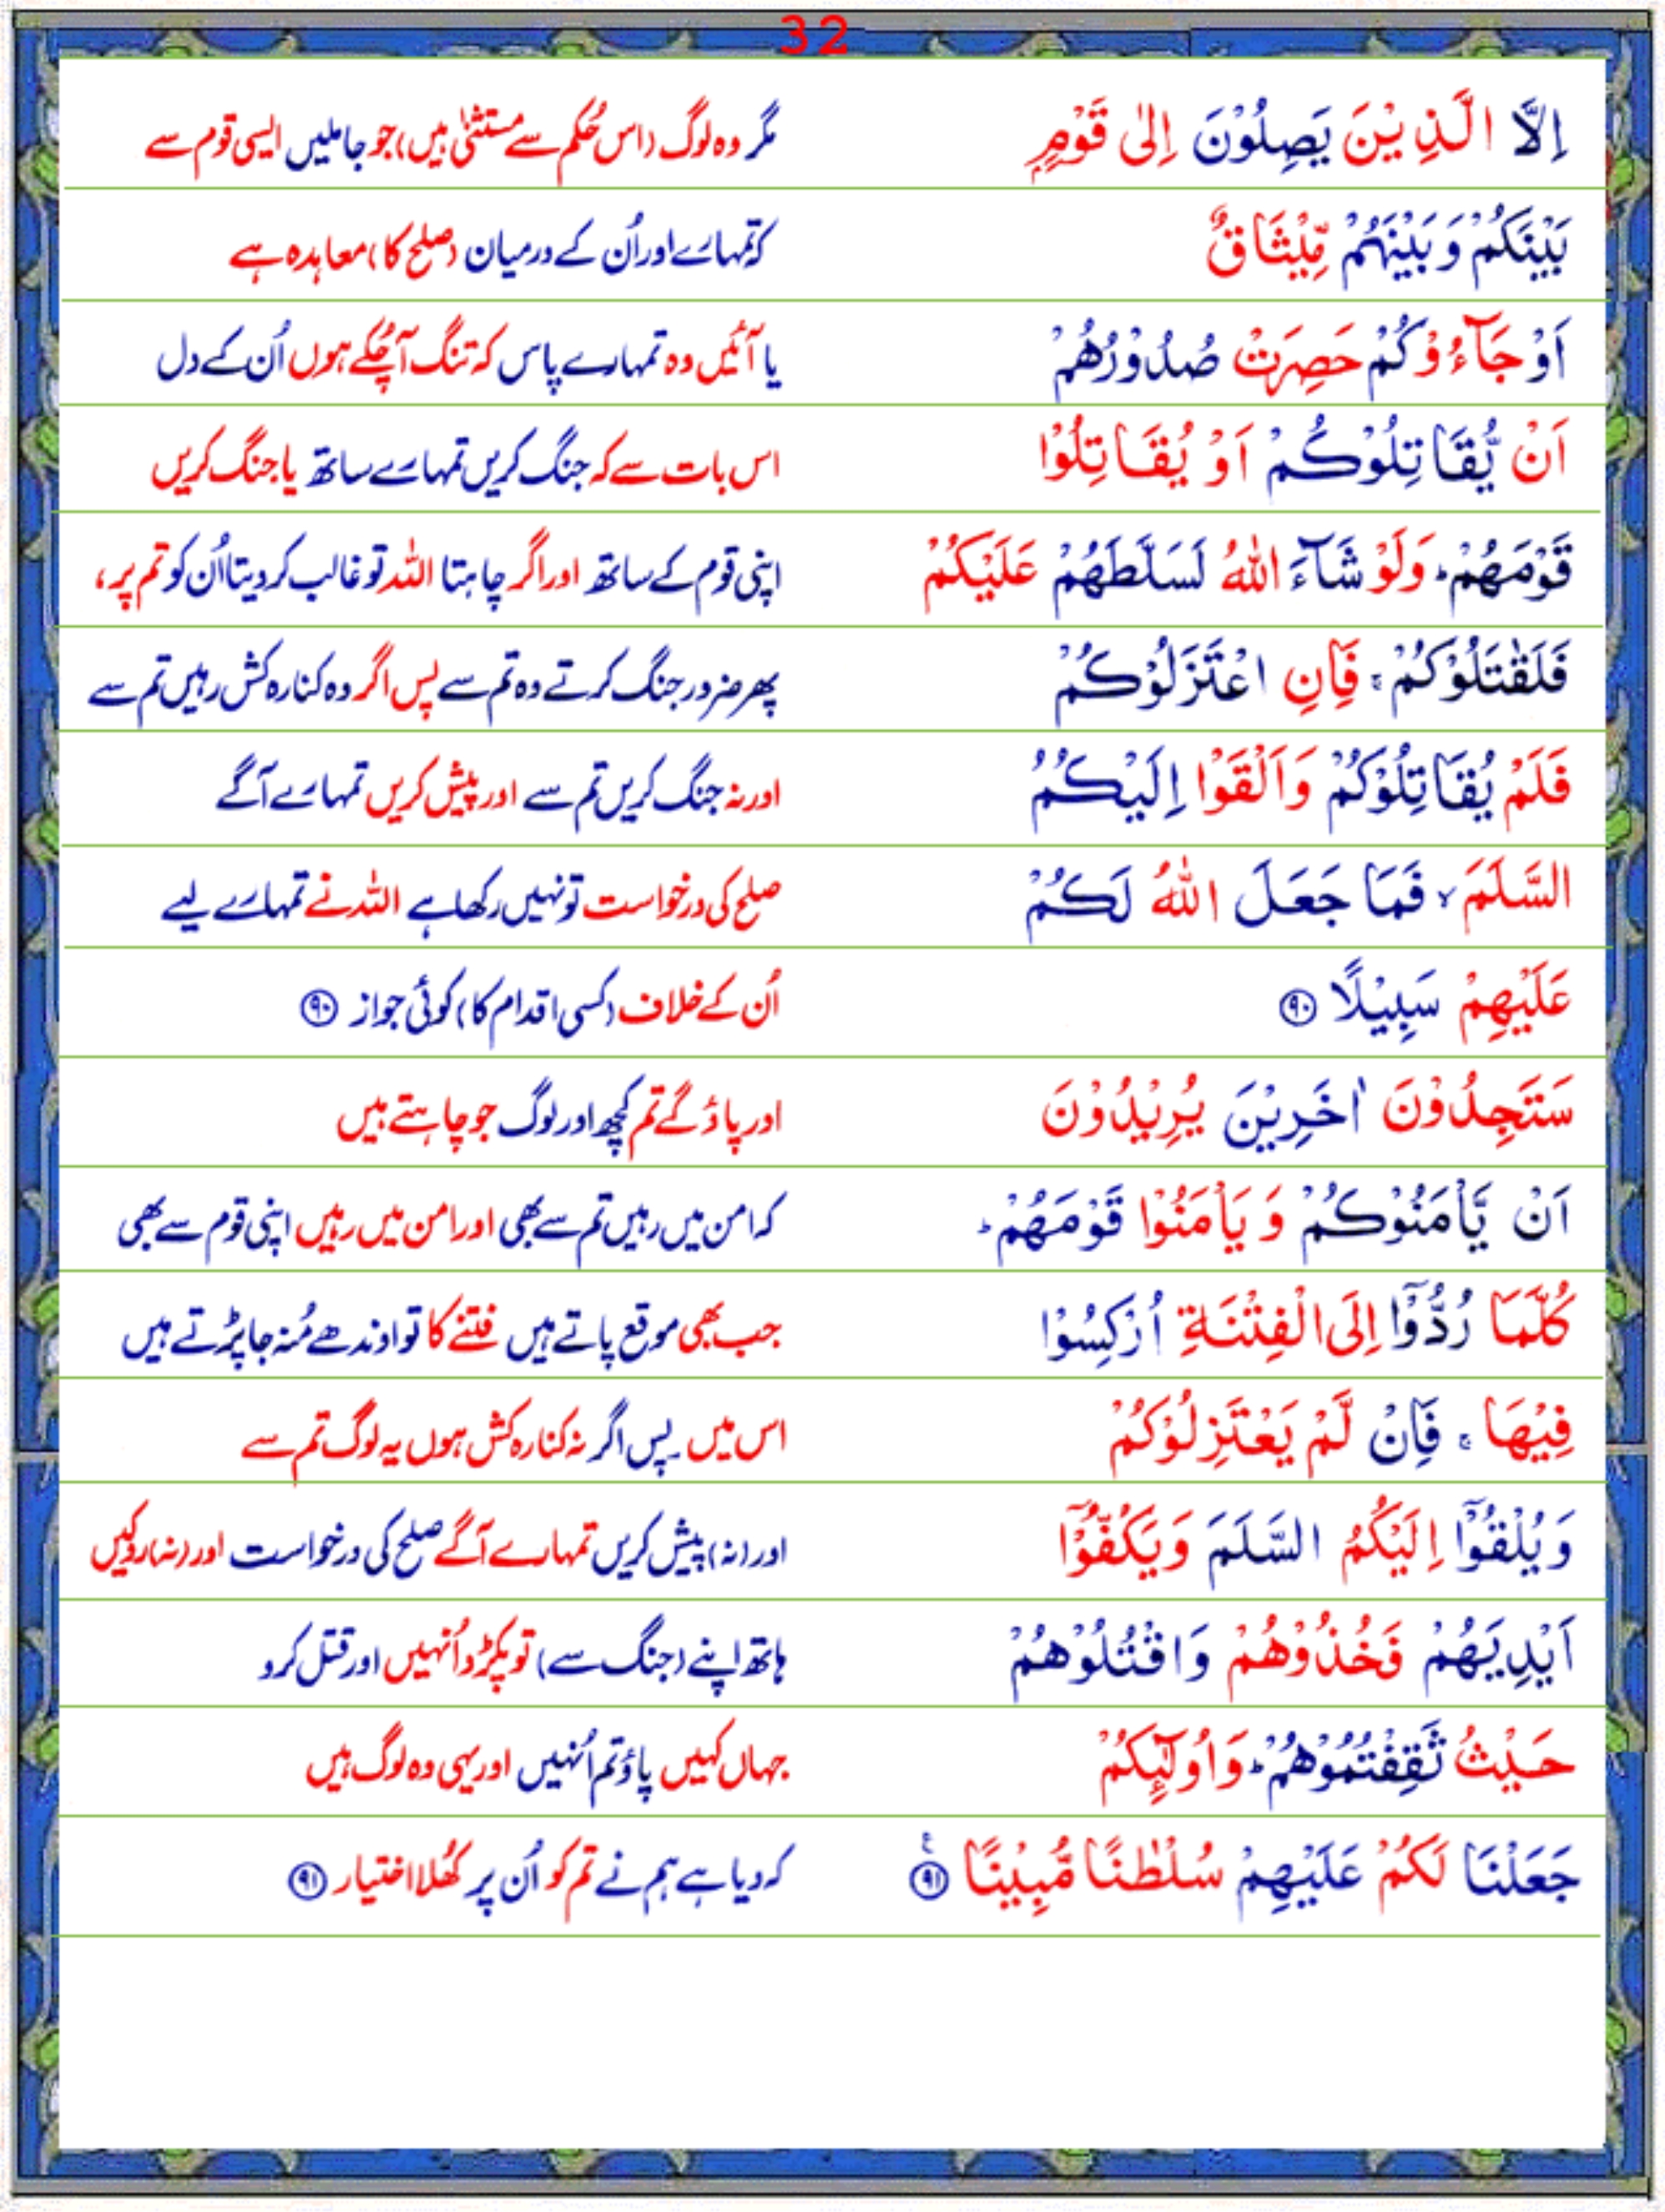 32
اِلَّا الَّذِيْنَ يَصِلُوْنَ اِلٰى قَوْمٍۭ مگر وہ لوگ (اس حُکم سے مستثنیٰ ہیں) جو جاملیں ایسی قوم سے
بَيْنَكُمْ وَبَيْنَهُمْ مِّيْثَاقٌ کہ تمہارے اور اُن کے درمیان (صلح کا) معاہدہ ہے
اَوْ جَآءُوْكُمْ حَصِرَتْ صُدُوْرُهُمْ یا آئیں وہ تمہارے پاس کہ تنگ آچُکے ہوں اُن کے دل
اَنْ يُّقَاتِلُوْكُمْ اَوْ يُقَاتِلُوْا اس بات سے کہ جنگ کریں تمہارے ساتھ یا جنگ کریں
قَوْمَهُمْ ؕ وَلَوْ شَآءَ اللّٰهُ لَسَلَّطَهُمْ عَلَيْكُمْ اپنی قوم کے ساتھ اور اگر چاہتا اللہ تو غالب کردیتا اُن کو تم پر،
فَلَقٰتَلُوْكُمْ ۚ فَاِنِ اعْتَزَلُوْكُمْ پھر ضرور جنگ کرتے وہ تم سے پس اگر وہ کنارہ کش رہیں تم سے
فَلَمْ يُقَاتِلُوْكُمْ وَاَلْقَوْا اِلَيْكُمُ اور نہ جنگ کریں تم سے اور پیش کریں تمہارے آگے
السَّلَمَ ۙ فَمَا جَعَلَ اللّٰهُ لَكُمْ صلح کی درخواست تو نہیں رکھا ہے اللہ نے تمہارے لیے
عَلَيْهِمْ سَبِيْلًا ۹۰ اُن کے خلاف (کسی اقدام کا) کوئی جواز ۹۰
سَتَجِدُوْنَ اٰخَرِيْنَ يُرِيْدُوْنَ اور پاؤ گے تم کچھ اور لوگ جو چاہتے ہیں
اَنْ يَّاْمَنُوْكُمْ وَيَاْمَنُوْا قَوْمَهُمْ ؕ کہ امن میں رہیں تم سے بھی اور امن میں رہیں اپنی قوم سے بھی
كُلَّمَا رُدُّوْۤا اِلَى الْفِتْنَةِ اُرْكِسُوْا جب بھی موقع پاتے ہیں فتنے کا تو اوندھے مُنہ جا پڑتے ہیں
فِيْهَا ۚ فَاِنْ لَّمْ يَعْتَزِلُوْكُمْ اس میں۔ پس اگر نہ کنارہ کش ہوں یہ لوگ تم سے
وَيُلْقُوْۤا اِلَيْكُمُ السَّلَمَ وَيَكُفُّوْۤا اور (نہ) پیش کریں تمہارے آگے صلح کی درخواست اور (نہ) روکیں
اَيْدِيَهُمْ فَخُذُوْهُمْ وَاقْتُلُوْهُمْ ہاتھ اپنے (جنگ سے) تو پکڑو اُنہیں اور قتل کرو
حَيْثُ ثَقِفْتُمُوْهُمْ ؕ وَاُولٰٓئِكُمْ جہاں کہیں پاؤ تم اُنہیں اور یہی وہ لوگ ہیں
جَعَلْنَا لَكُمْ عَلَيْهِمْ سُلْطٰنًا مُّبِيْنًا ۹۱ کہ دیا ہے ہم نے تم کو اُن پر کُھلا اختیار ۹۱